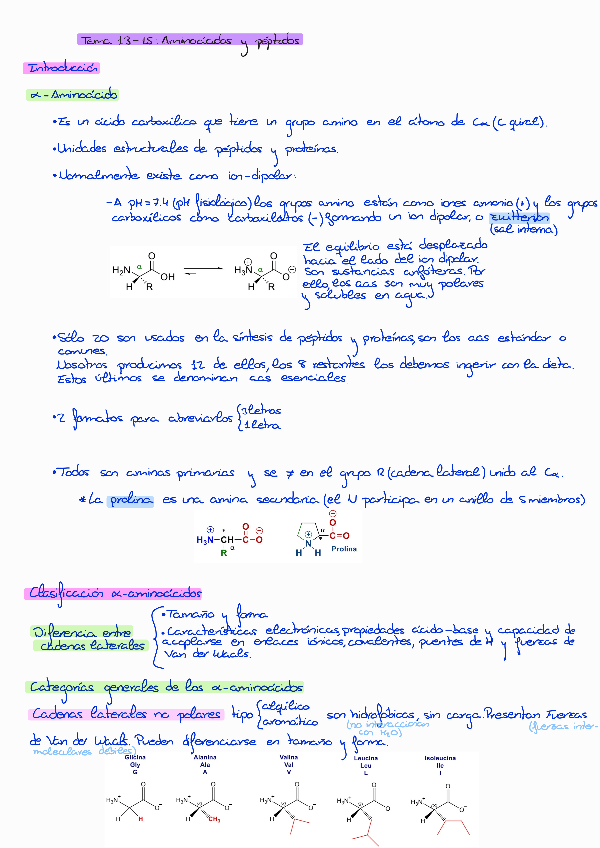 Tema 13-15: Aminoácidos y péptidos
Introducción
α-Aminoácido
• Es un ácido carboxílico que tiene un grupo amino en el átomo de Cα (C quiral).
• Unidades estructurales de péptidos y proteínas.
• Normalmente existe como ion-dipolar:
- A pH = 7.4 (pH fisiológico) los grupos amino están como iones amonio (+) y los grupos
carboxílicos como carboxilatos (-) formando un ion dipolar, o zwitterión
(sal interna)
El equilibrio está desplazado
hacia el lado del ion dipolar.
Son sustancias anfóteras. Por
ello, los aas son muy polares
y solubles en agua.
H₂N α O OH H R
H₃N α O O H R
• Sólo 20 son usados en la síntesis de péptidos y proteínas, son los aas estándar o
comunes.
Nosotros producimos 12 de ellos, los 8 restantes los debemos ingerir con la dieta.
Estos últimos se denominan aas esenciales
• 2 formatos para abreviarlos { 3 letras
1 letra
• Todos son aminas primarias y se ≠ en el grupo R (cadena lateral) unido al Cα.
* La prolina es una amina secundaria (el N participa en un anillo de 5 miembros)
H₃N-CH-C-O O R α
N H H C=O O
Prolina
Clasificación α-aminoácidos
Diferencia entre
cadenas laterales
• Tamaño y forma
• Características electrónicas, propiedades ácido-base y capacidad de
acoplarse en enlaces iónicos, covalentes, puentes de H y fuerzas de
Van der Waals.
Categorías generales de los α-aminoácidos
Cadenas laterales no polares tipo { alquílico
aromático
son hidrofóbicas, sin carga. Presentan Fuerzas
(no interaccionan
con H₂O)
(fuerzas inter-
de Van der Waals. Pueden diferenciarse en tamaño y forma.
moleculares débiles)
Glicina Alanina Valina Leucina Isoleucina
Gly Ala Val Leu Ile
G A V L I
H₃N⁺ O O⁻ H H
H₃N⁺ O O⁻ H CH₃
H₃N⁺ O O⁻ H
H₃N⁺ O O H
H₃N⁺ O O⁻ H